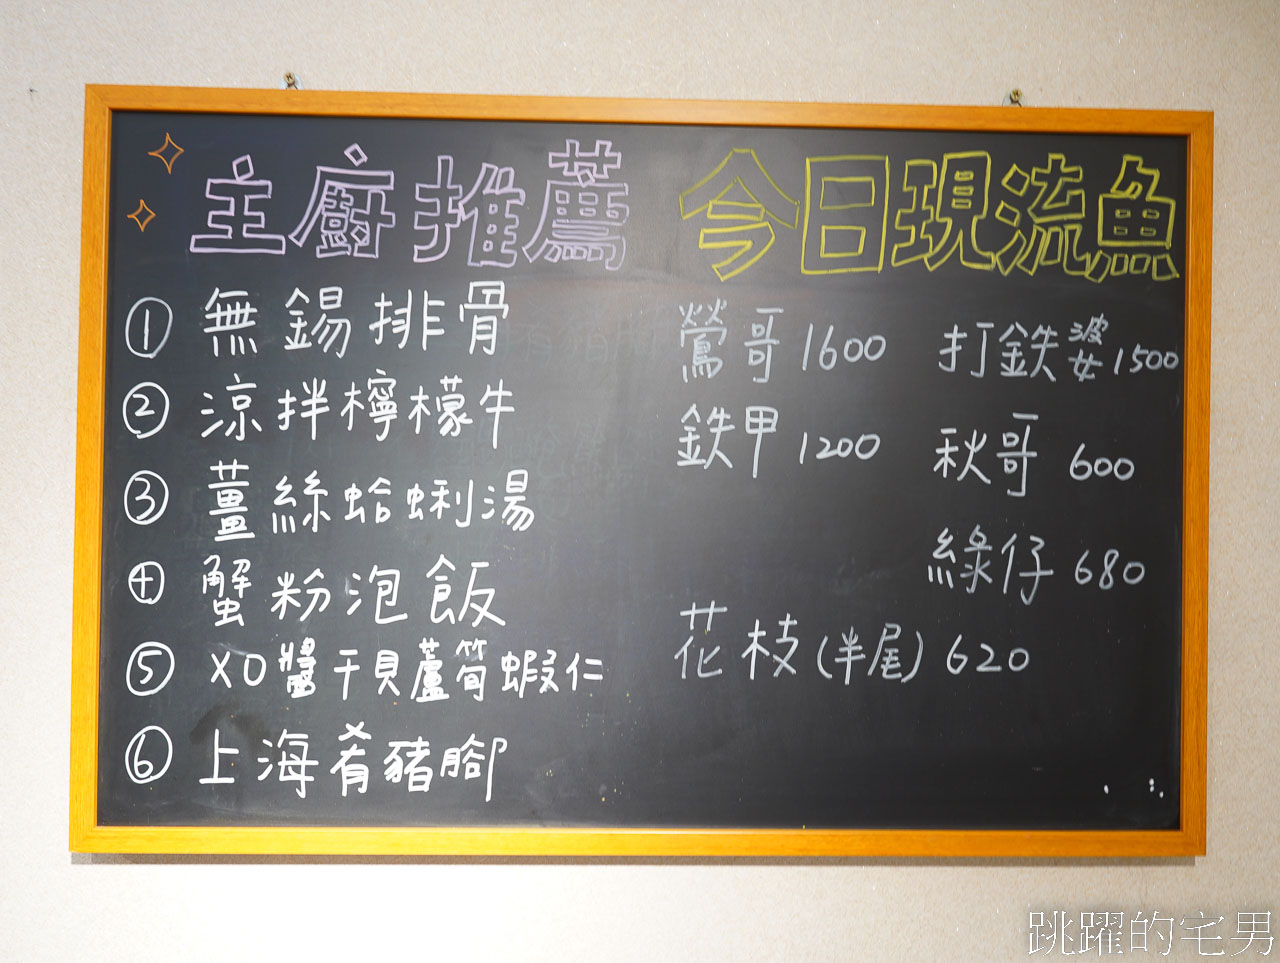 主廚推薦
① 無錫排骨
② 涼拌檸檬牛
③ 薑絲蛤蜊湯
④ 蟹粉泡飯
⑤ XO醬干貝蘆筍蝦仁
⑥ 上海肴豬腳
今日現流魚
鶯哥 1600
打鉄婆 1500
鉄甲 1200
秋哥 600
綠仔 680
花枝(半尾) 620
跳躍的宅男